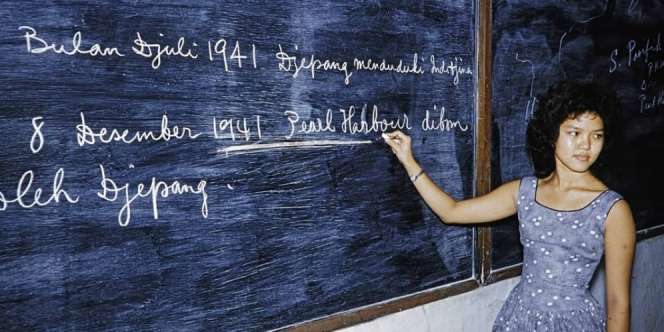 Bulan Djuli 1941 Djepang menduduki Indotjina
8 Desember 1941 Pearl Harbour dibom
oleh Djepang.
S. Pasifik